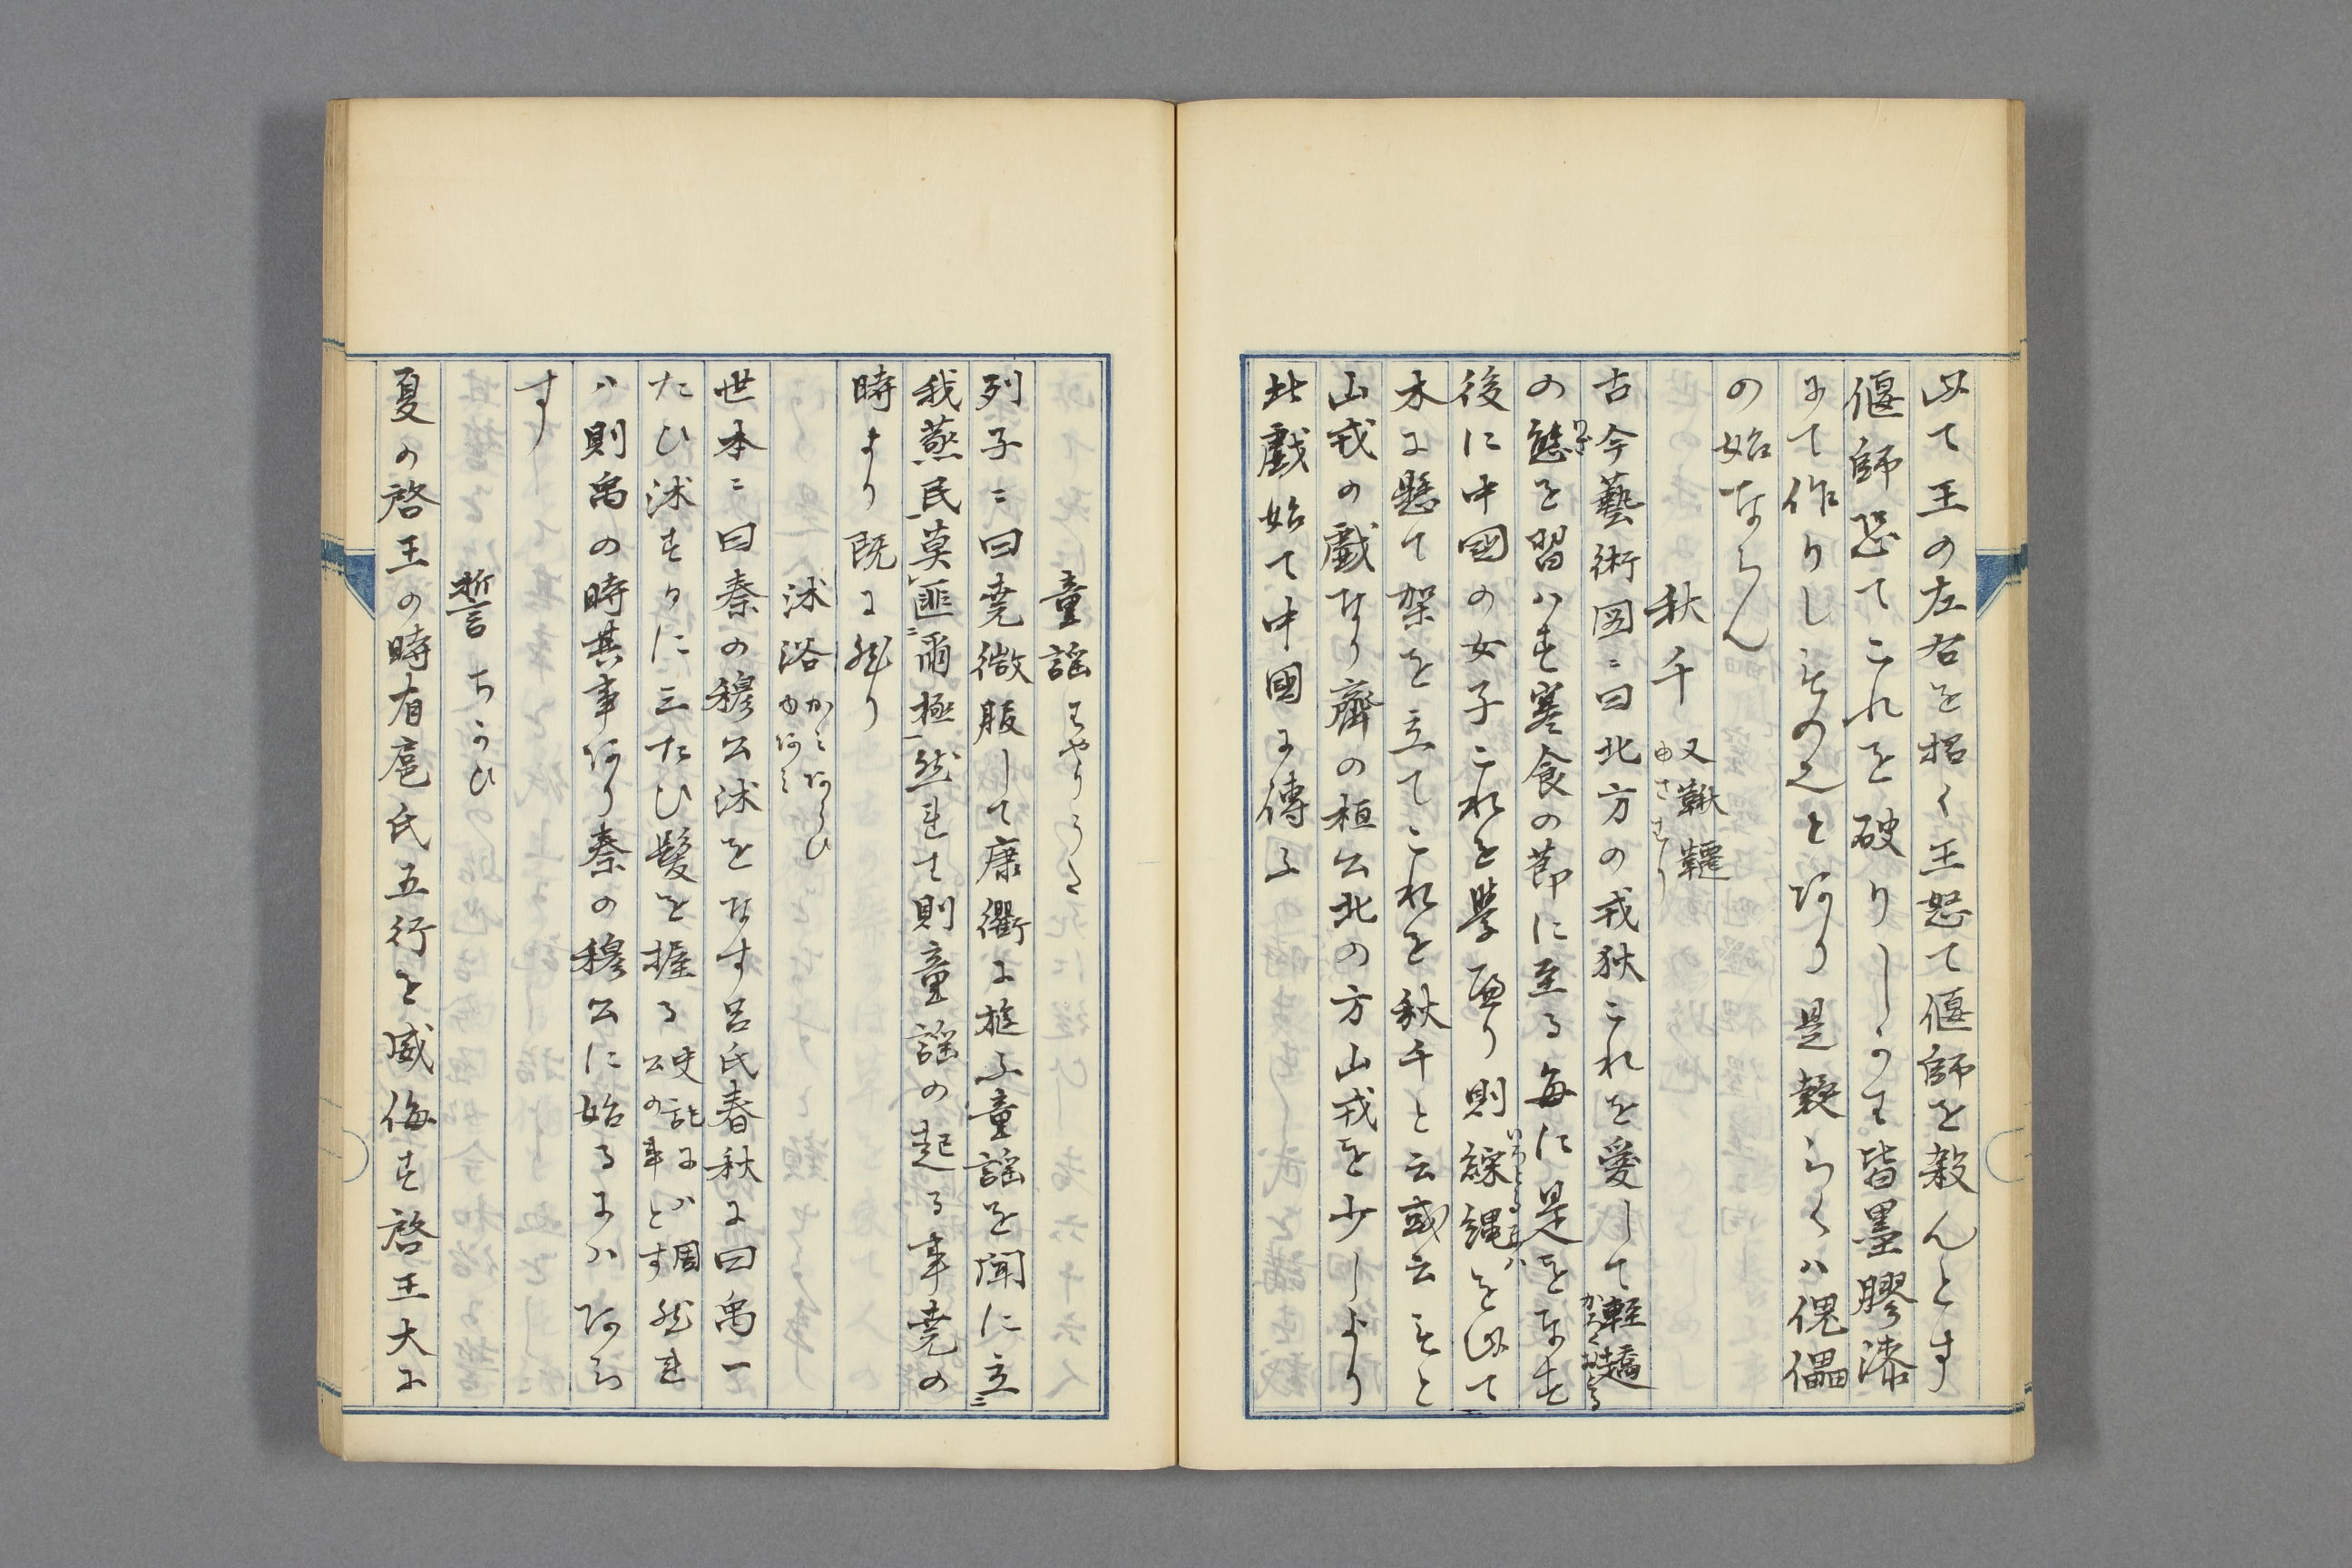 以て王の左右を招く王怒て偃師を殺んとす
偃師恐てこれを破りしかは皆墨膠漆
にて作りしものとあり是疑らくハ傀儡
の始ならん
秋千 又鞦韆 ゆさはり
古今藝術図ニ曰北方の戎狄これを愛して軽趫
の態を習ハす寒食の節に至る毎に是をなす
後に中國の女子これを學ふ則綵縄を以て
木に懸て架を立てこれを秋千と云或云もと
山戎の戯なり齊の桓公北の方山戎を少しより
此戯始て中國に傳ふ
童謡 わさうた
列子ニ曰堯微服して康衢に遊ふ童謡を聞に立ニ
我蒸民莫匪爾極然れは則童謡の起る事堯の
時より既に然り
沭浴 かみあらひ ゆあみ
世本ニ曰秦の穆公沭をなす呂氏春秋に曰禹一
たひ沭するに三たひ髪を握る 史記には周公の事とす 然れ
ハ則禹の時其事あり秦の穆公に始るにハあら
す
誓 ちかひ
夏の啓王の時有扈氏五行を威侮す啓王大に